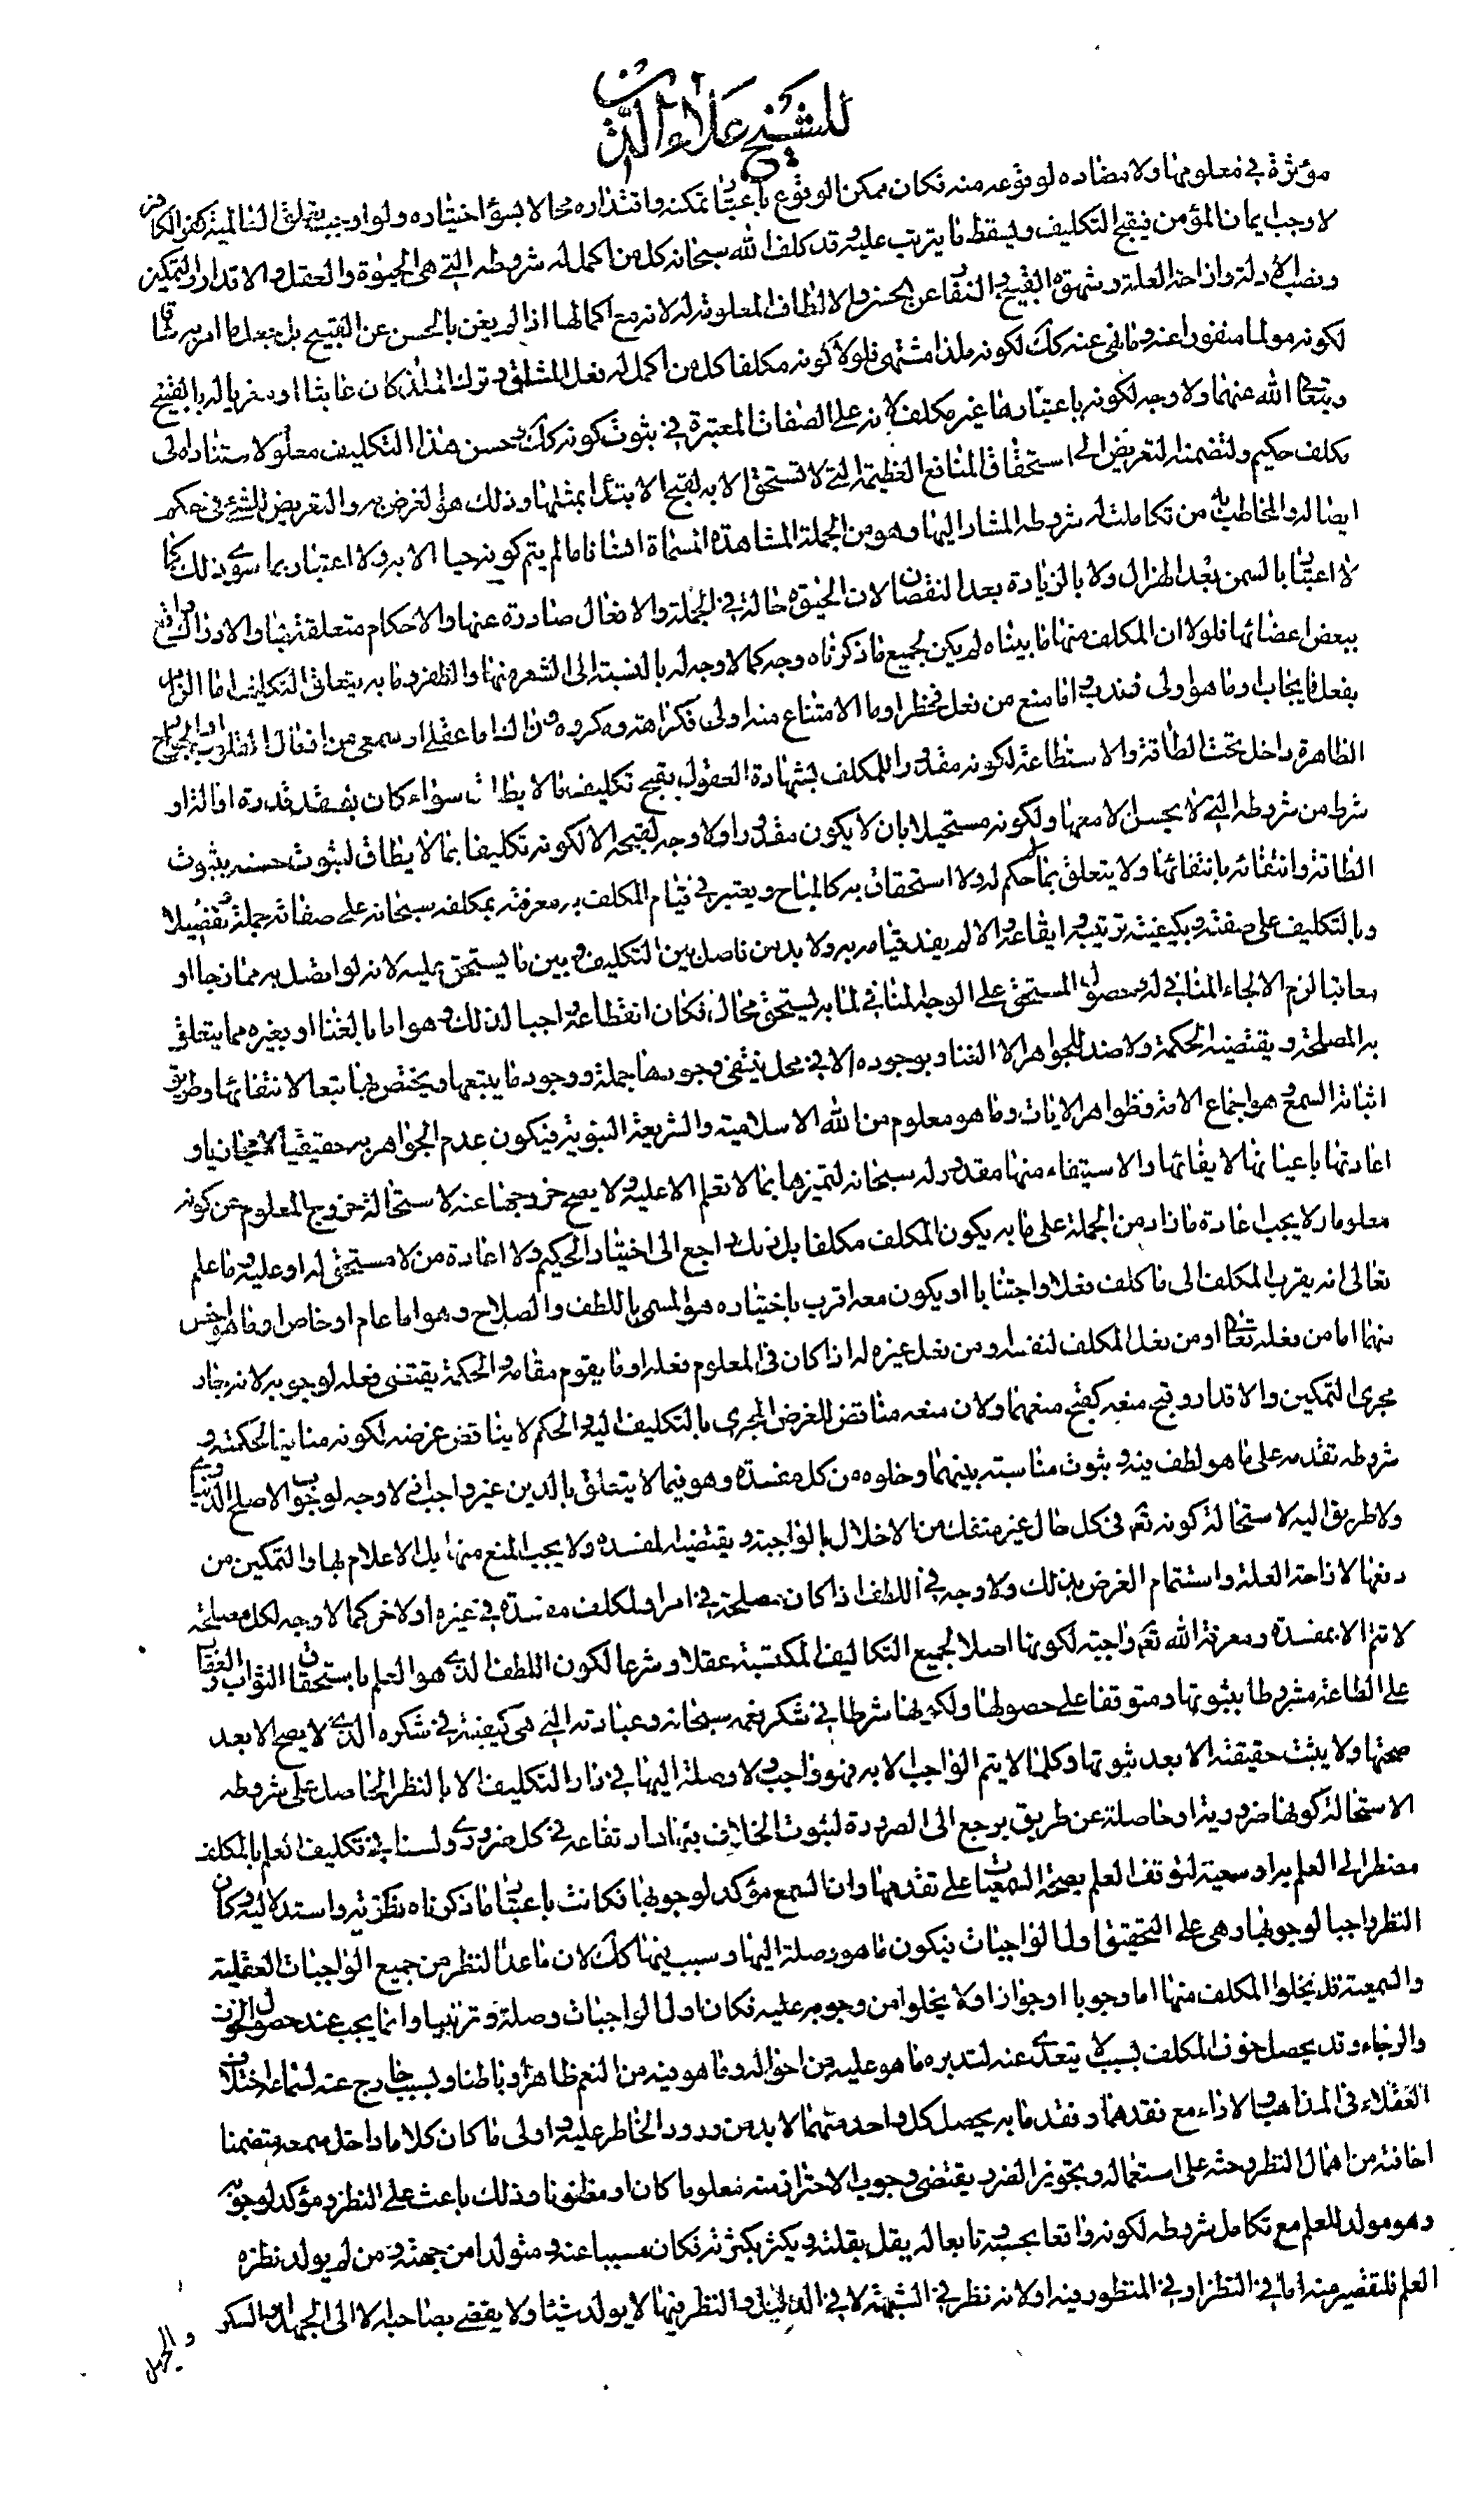 للشيخ علاء الدين
مؤثرة في معلومها ولا مضاده لوقوعه منه فكان ممكن الوقوع باعتبار تمكنه واقتداره محالا بسوء اختياره ولو اوجب تعلق العلم كفر الكافر
لاوجب ايمان المؤمن فيقبح التكليف ويسقط ما يترتب عليه وقد كلف الله سبحانه كل من اكمل له شروطه التي هي الحيوة والعقل والاقدار والتمكين
ونصب الادلة وازاحة العلة وشهوة القبيح والنفار عن الحسن والالطاف المعلومة له لانه مع اكمالها اذا لم يغن بالحسن عن القبيح بل جعل ما امر به شاقا
لكونه مولما منفورا عنه وما نهى عنه كك لكونه ملذا مشتهى فلولا كونه مكلفا كل من اكمل له فعل المشاق وترك الملاذ كان عابثا او مغريا له بالقبيح
ويتعالى الله عنهما ولا وجه لكونه باعتبارها غير مكلف لانه على الصفات المعتبرة في ثبوت كونه كك وحسن هذا التكليف معلوم لاستناده الى
مكلف حكيم ولتضمنه التعريض الى استحقاق المنافع العظيمة التي لا تستحق الا به لقبح الابتداء بمثلها وذلك هو الغرض به والتعريض للشيء في حكم
ايصاله والمخاطب به من تكاملت له شروطه المشار اليها وهو من الجملة المشاهدة المسماة انسانا ما لم يتم كونه حيا الا به ولا اعتبار بما سوى ذلك كما
لا اعتبار بالسمن بعد الهزال ولا بالزيادة بعد النقصان لان الحيوة حالة في الجملة والافعال صادرة عنها والاحكام متعلقة بها والادراك واقع
ببعض اعضائها فلولا ان المكلف منها ما بيناه لم يكن لجميع ما ذكرناه وجه كما لا وجه له بالنسبة الى الشعر منها والظفر وما به يتعلق التكليف اما الزام
بفعل فايجاب او ما هو اولى فندب واما منع من فعل فحظر او ما الامتناع منه اولى فكراهة ومكروه وذلك اما عقلي او سمعي من افعال القلوب او الجوارح
الظاهرة داخل تحت الطاقة والاستطاعة لكونه مقدورا للمكلف لشهادة العقول بقبح تكليف ما لا يطاق سواء كان بفقد قدرة او الة او
شرط من شروطه التي لا يحسن الا معها ولكونه مستحيلا بان لا يكون مقدورا ولا وجه لقبحه الا لكونه تكليفا بما لا يطاق لثبوت حسنه بثبوت
الطاقة وانتفائه بانتفائها ولا يتعلق بما لا حكم له ولا استحقاق به كالمباح ويعتبر في قيام المكلف به معرفته بمكلفه سبحانه على صفاته جملة وتفصيلا
وبالتكليف على صفته وبكيفية ترتيبه وايقاعه والا لم يفد قيامه به ولا بد من فاصل بين التكليف وبين ما يستحق عليه لانه لو اتصل به ممازجا او
معاقبا لزم الالجاء المنافي له وحصول المستحق على الوجه المنافي لما به يستحق محال فكان انقطاعه واجبا لذلك وهو اما بالفناء او بغيره مما يتعلق
به المصلحة ويقتضيه الحكمة ولا ضد للجواهر الا الفناء وبوجوده لا في محل ينتفي وجودها جملة ووجود ما يتبعها ويختص بها تبعا لانتفائها وطريق
اثباته السمع وهو اجماع الامة وظواهر الايات وما هو معلوم من الملة الاسلامية والشريعة النبوية فيكون عدم الجواهر به حقيقيا لا مجازيا و
اعادتها باعيانها لايفائها والاستيفاء منها مقدور له سبحانه لتميزها بما لا تعلم الا عليه ولا يصح خروجها عنه لاستحالة خروج المعلوم عن كونه
معلوما ولا يجب اعادة ما زاد من الجملة على ما به يكون المكلف مكلفا بل ذلك راجع الى اختيار الحكيم ولا اعادة من لا مستحق له او عليه وما علم
تعالى انه يقرب المكلف الى ما كلف فعلا واجتنابا او يكون معه اقرب باختياره هو المسمى باللطف والصلاح وهو اما عام او خاص او ما هو اخص
منهما اما من فعله تعالى او من فعل المكلف لنفسه او من فعل غيره له اذا كان في المعلوم فعله او ما يقوم مقامه والحكمة يقتضي فعله لوجوبه لانه جار
مجرى التمكين والاقدار وقبح منعه كقبح منعهما ولان منعه مناقض للغرض المجرى بالتكليف اليه والحكيم لا يناقض غرضه لكونه منافيا لحكمته و
شروطه تقدمه على ما هو لطف فيه وثبوت مناسبة بينهما وخلوه من كل مفسدة وهو فيما لا يتعلق بالدين غير واجب اذ لا وجه لوجوب الاصلح الدنياوي
ولا طريق اليه لاستحالة كونه تعالى في كل حال غير منفك من الاخلال بالواجب وما يقتضيه المفسدة ولا يجب المنع منها بل الاعلام بها والتمكين من
دفعها لازاحة العلة واستتمام الغرض بذلك ولا وجه في اللطف اذا كان مصلحة في امر او لمكلف مفسدة في غيره او لاخر كما لا وجه لكل مصلحة
لا تتم الا بمفسدة ومعرفة الله تعالى واجبة لكونها اصلا لجميع التكاليف المكتسبة عقلا وشرعا لكون اللطف الذي هو العلم باستحقاق الثواب والعقاب
على الطاعة مشروطا بثبوتها ومتوقفا على حصولها ولكونها شرطا في شكر نعمه سبحانه وعبادته التي هي كيفية في شكره الذي لا يصح الا بعد
صحتها ولا يثبت حقيقته الا بعد ثبوتها وكلما لا يتم الواجب الا به فهو واجب ولا وصلة اليها في دار التكليف الا بالنظر الحاصل على شروطه
لاستحالة كونها ضرورية او حاصلة عن طريق يرجع الى الضرورة لثبوت الخلاف فيها وارتفاعه في كل ضروري ولسنا في تكليف العلم بالمكلف
مضطرا الى العلم به او سمعية لتوقف العلم بصحة السمعيات على تقدمها وان السمع مؤكد لوجوبها فكانت باعتبار ما ذكرناه نظرية واستدلالية وكان
النظر واجبا لوجوبها وهي على التحقيق اول الواجبات فيكون ما هو وصلة اليها وسبب فيها كك لان ما عدا النظر من جميع الواجبات العقلية
والسمعية قد يخلوا المكلف منها اما وجوبا او جوازا ولا يخلوا من وجوبه عليه فكان اول الواجبات وصلة وترتيبا وانما يجب عند حصول الخوف
والرجاء وقد يحصل خوف المكلف لسبب لا يتعدى عنه لتدبره ما هو عليه من احواله وما هو فيه من النعم ظاهرا وباطنا ولسبب خارج عنه لسماعه اختلاف
العقلاء في المذاهب والاراء مع فقدهما وفقد ما به يحصل كل واحد منهما لا بد من ورود الخاطر عليه واولى ما كان كلاما داخل سمعه متضمنا
اخافته من اهمال النظر وحثه على استعماله وتجويز الضرر يقتضي وجوب الاحتراز منه معلوما كان او مظنونا وذلك باعث على النظر ومؤكد لوجوبه
وهو مولد للعلم مع تكامل شروطه لكونه واقعا بحسبه تابعا له يقل بقلته ويكثر بكثرته فكان مسببا عنه ومتولدا من جهته ومن لم يولد نظره
العلم فلتقصير منه اما في النظر او في المنظور فيه او لانه نظر في الشبهة لا في الدليل والنظر فيها لا يولد شيئا ولا يقضي بصاحبه الا الى الجهل او الشك
والجهل